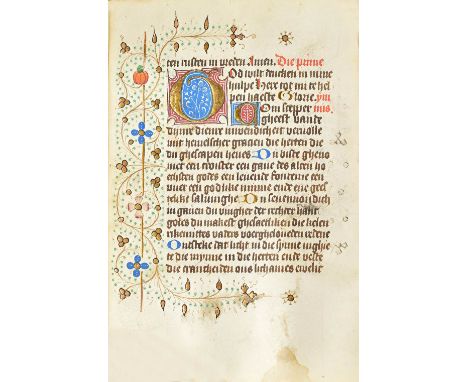 een rusten in vreden Amen. Die prime
God wilt dencken in mine
hulpe Here tot mi te hel
pen haeste Glorie. ym
Com scepper mis.
gheest vande
dijnre dienre inwendicheit vervolle
mit hemelscher gracien die herten die
du ghescapen heves Du biste ghenoemt
een trooster een gave des alren ho
echsten godes een levende fonteine een
vuer een godlike minne ende een geeſ
telike salvinghe Du
in gaven du vingher der rechter hant
gods du makest ghesprakich die kelen
vaders
Ontsteke dat licht in die sinne inghe
te die mynne in die herten ende veste
die crancheiden ons lichames ewelic